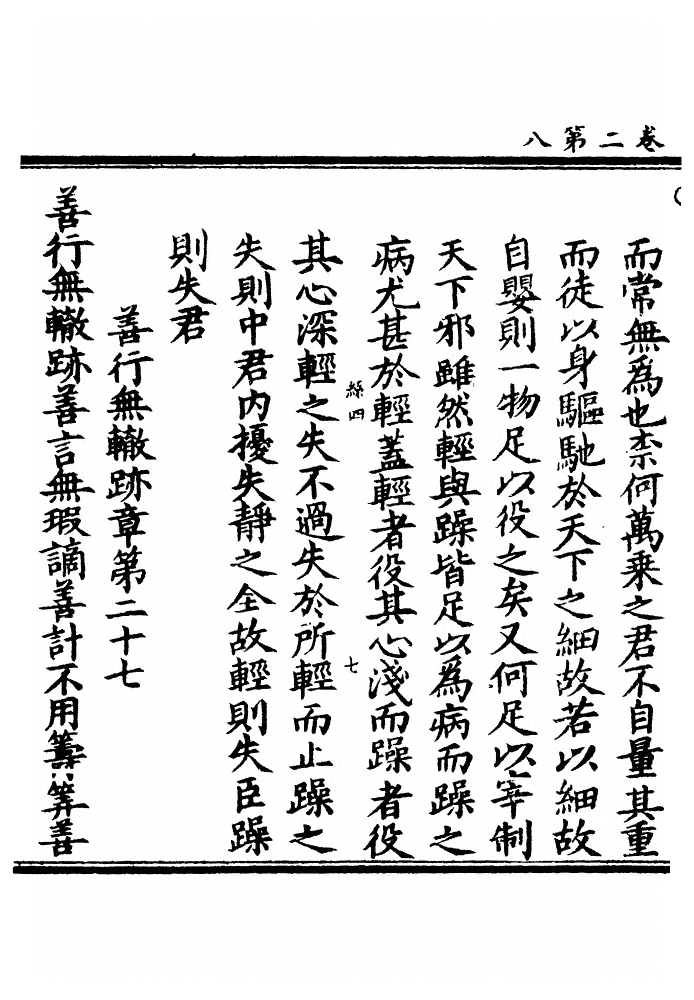 卷二第八
而常無為也柰何萬乗之君不自量其重
而徒以身驅馳於天下之細故若以細故
自嬰則一物足以役之矣又何足以宰制
天下邪雖然輕與躁皆足以為病而躁之
病尤甚於輕蓋輕者役其心淺而躁者役
絲四
七
其心深輕之失不過失於所輕而止躁之
失則中君内擾失靜之全故輕則失臣躁
則失君
善行無轍跡章第二十七
善行無轍跡善言無瑕謫善計不用籌筭善